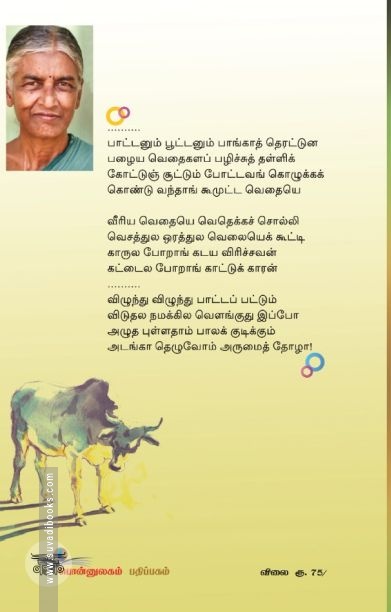 ..........
பாட்டனும் பூட்டனும் பாங்காத் தெரட்டுன
பழைய வெதைகளப் பழிச்சுத் தள்ளிக்
கோட்டுஞ் சூட்டும் போட்டவங் கொழுக்கக்
கொண்டு வந்தாங் கூமுட்ட வெதையெ
வீரிய வெதையெ வெதெக்கச் சொல்லி
வெசத்துல ஒரத்துல வெலையெக் கூட்டி
காருல போறாங் கடய விரிச்சவன்
கட்டைல போறாங் காட்டுக் காரன்
..........
விழுந்து விழுந்து பாட்டப் பட்டும்
விடுதல நமக்கில வெளங்குது இப்போ
அழுத புள்ளதாம் பாலக் குடிக்கும்
அடங்கா தெழுவோம் அருமைத் தோழா!
www.suvadibooks.com
பொன்னுலகம் பதிப்பகம்
விலை ரூ. 75/